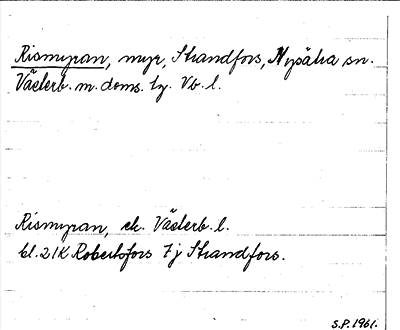 Rismyran, myr, Strandfors, Nysätra sn.
Västerb. m. doms. lg. Vb. l.
Rismyran, ek. Västerb. l.
bl. 21K Robertsfors 7j Strandfors.
S.P. 1961.